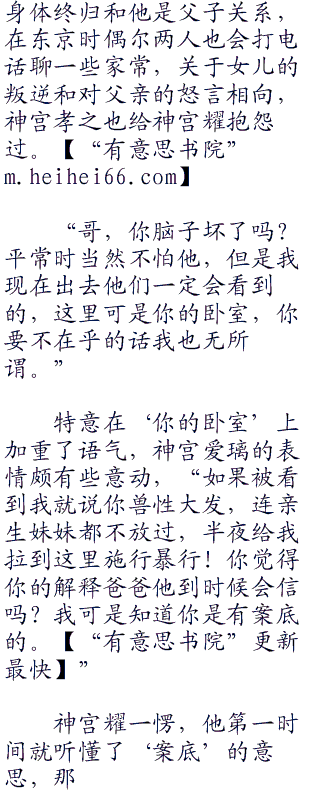 身体终归和他是父子关系，
在东京时偶尔两人也会打电
话聊一些家常，关于女儿的
叛逆和对父亲的怒言相向，
神宫孝之也给神宫耀抱怨
过。【“有意思书院”
m.heihei66.com】
“哥，你脑子坏了吗？
平常时当然不怕他，但是我
现在出去他们一定会看到
的，这里可是你的卧室，你
要不在乎的话我也无所
谓。”
特意在‘你的卧室’上
加重了语气，神宫爱璃的表
情颇有些意动，“如果被看
到我就说你兽性大发，连亲
生妹妹都不放过，半夜给我
拉到这里施行暴行！你觉得
你的解释爸爸他到时候会信
吗？我可是知道你是有案底
的。【“有意思书院”更新
最快】”
神宫耀一愣，他第一时
间就听懂了‘案底’的意
思，那